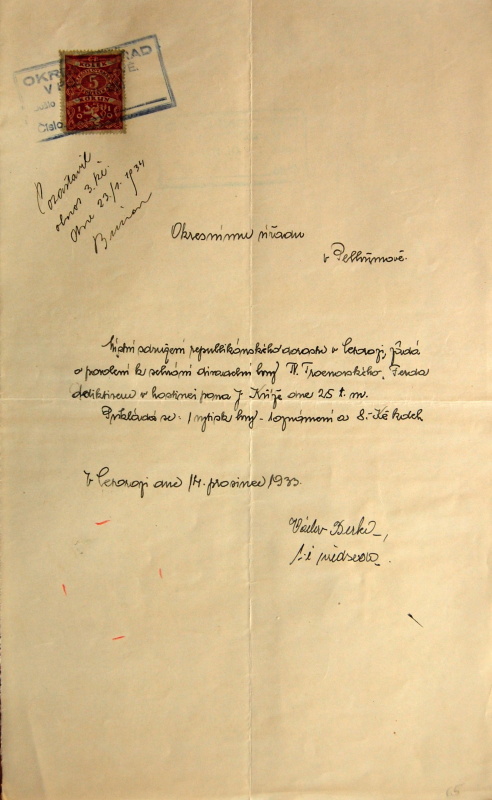 OKRESNÍ ÚŘAD
V
Číslo
KOLEK
5
KORUN
obnos 3 Kč.
dne 23/1. 1934
Okresnímu úřadu
v Pelhřimově.
Místní sdružení republikánského dorostu v Cerazi, žádá
o povolení ku sehrání divadelní hry Fr. Ferda
detektivem v hostinci pana J. Kříže dne 25 t. m.
Přikládá se: 1 výtisk hry - 1 oznámení a 8.- Kč kolek
V Cerazi dne 14. prosince 1933.
Václav
t. č. předseda.